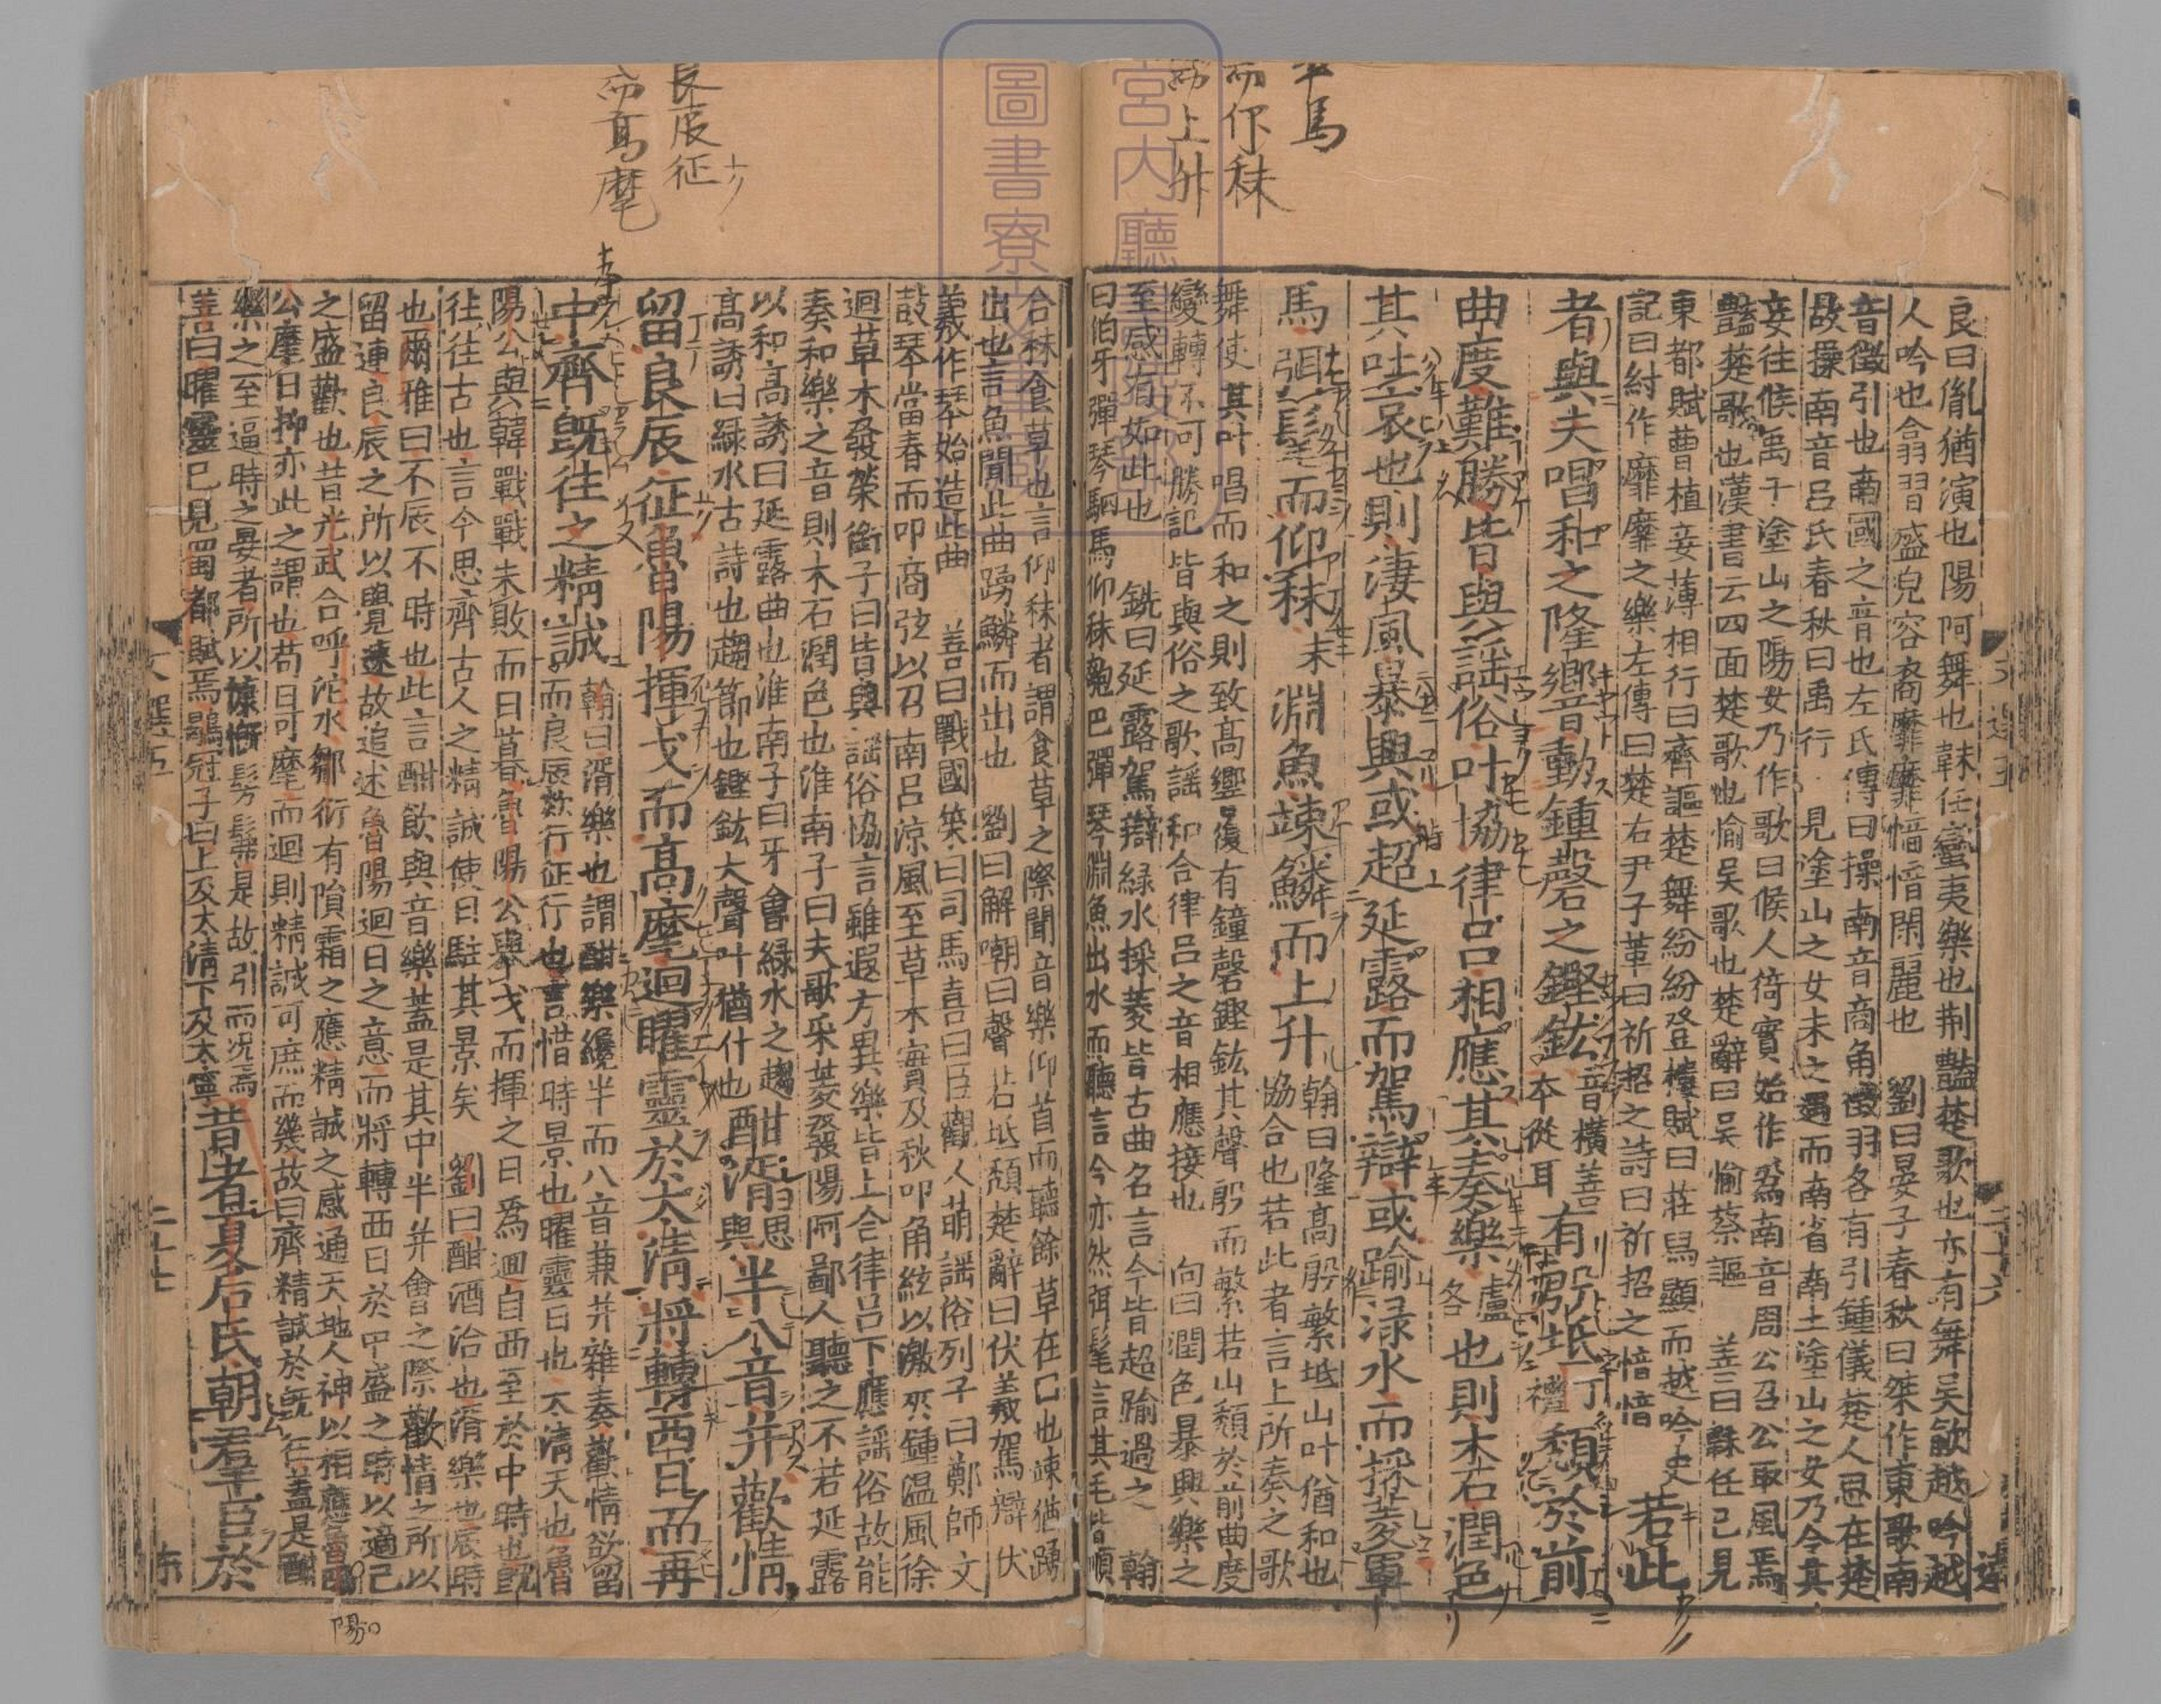 良曰胤猶演也陽阿舞也韎任蠻夷樂也荆豔楚歌也亦有舞吳歈越吟越
人吟也翕習盛皃容裔靡靡愔愔閑麗也 劉曰晏子春秋曰桀作東歌南
音徵引也南國之音也左氏傳曰操南音商角徵羽各有引鍾儀楚人思在楚
故操南音呂氏春秋曰禹行見塗山之女未之遇而南省南土塗山之女乃令其
妾往候禹于塗山之陽女乃作歌曰候人猗實始作爲南音周公召公取風焉
豔楚歌也漢書云四面楚歌也愉吳歌也楚辭曰吳愉蔡謳 善曰韎任已見
東都賦曹植妾薄相行曰齊謳楚舞紛紛登樓賦曰莊舄顯而越吟史
記曰紂作靡靡之樂左傳曰楚右尹子革曰祈招之詩曰祈招之愔愔 若此
者與夫唱和之隆響動鍾磬之鏗鈜音橫善本從耳有殷坻丁禮頹於前
曲度難勝皆與謠俗叶協律呂相應其奏樂也則木石潤色
其吐哀也則淒風暴興或超延露而駕辯或踰淥水而採菱軍
馬弭髦而仰秣末淵魚竦鱗而上升翰曰隆高殷繁坻山叶猶和也協合也若此者言上所奏之歌
舞使其叶唱而和之則致高響復有鐘磬鏗鈜其聲殷而繁若山頹於前曲度
變轉不可勝記皆與俗之歌謠和合律呂之音相應接也 向曰潤色暴興樂之
至感有如此也 銑曰延露駕辯緑水採菱皆古曲名言今皆超踰過之 翰
曰伯牙彈琴駟馬仰秣瓠巴彈琴淵魚出水而聽言今亦然弭髦言其毛皆順
合秣食草也言仰秣者謂食草之際聞音樂仰首而聽餘草在口也竦猶踴
出也言魚聞此曲踴鱗而出也 劉曰解嘲曰聲若坻頹楚辭曰伏羲駕辯伏
羲作琴始造此曲 善曰戰國筞曰司馬喜曰臣觀人萌謡俗列子曰鄭師文
鼓琴當春而叩商弦以召南呂涼風至草木實及秋叩角絃以激夾鍾温風徐
迴草木發榮衝子曰皆與謡俗協言雖遐方異樂皆上合律呂下應謡俗故能
奏和樂之音則木石潤色也淮南子曰夫歌采菱發陽阿鄙人聽之不若延露
以和高誘曰延露曲也淮南子曰牙會緑水之趨
高誘曰緑水古詩也趨節也鏗鈜大聲叶猶什也酣湑思與半八音并歡情
留良辰征魯陽揮戈而高麾迴曜靈於太清將轉西日而再
中齊既往之精誠翰曰湑樂也謂酣樂纔半而八音兼并雜奏歡情欲留
而良辰欻行征行也言惜時景也曜靈日也太清天也魯
陽公與韓戰戰未敗而日暮魯陽公與戈而揮之日爲迴自西至於中時也既
往往古也言今思齊古人之精誠使日駐其景矣 劉曰酣酒洽也湑樂也辰時
也爾雅曰不辰不時也此言酣飲與音樂蓋是其中半并會之際歡情之所以
留連良辰之所以覺速故追述魯陽迴日之意而將轉西日於中盛之時以適己
之盛歡也昔光武合呼沱水鄒衍有隕霜之應精誠之感通天地人神以相應魯陽
公麾日抑亦此之謂也苟日可麾而迴則精誠可庶而幾故曰齊精誠於既往蓋是酣
樂之至逼時之晏者所以慷慨髣髴是故引而況焉
善曰曜靈已見蜀都賦焉鶡冠子曰上及太清下及太寧昔者夏后氏朝羣臣於
文選五
二十七
率馬
而仰秣
而上升
良辰征
而高麾
陽
宮内廳
圖書寮